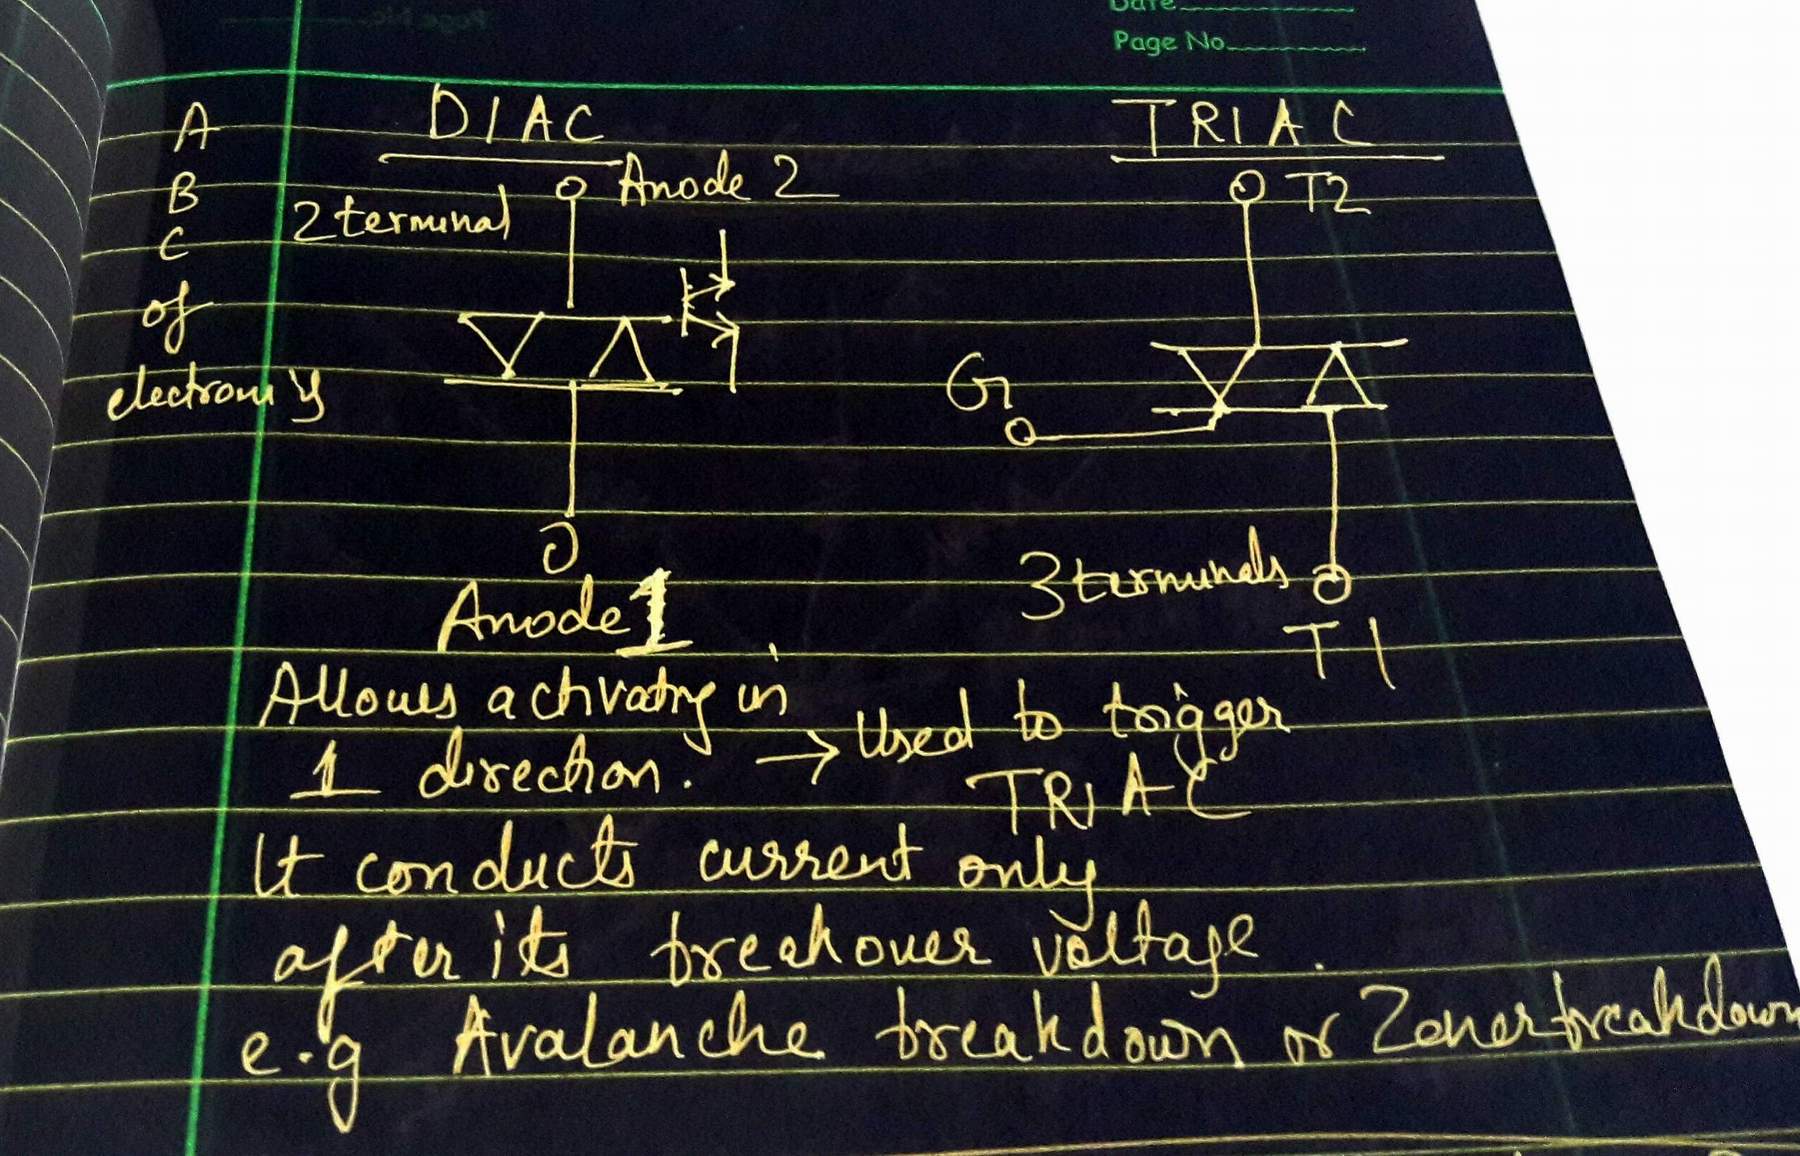 Date
Page No.
A
B
C
of
electronics
DIAC
TRIAC
Anode 2
T2
2 terminal
G
Anode 1
3 terminals
T1
Allows activatng in
1 direction. → Used to trigger
TRIAC
It conducts current only
after its breakover voltage.
e.g Avalanche breakdown or Zener breakdown